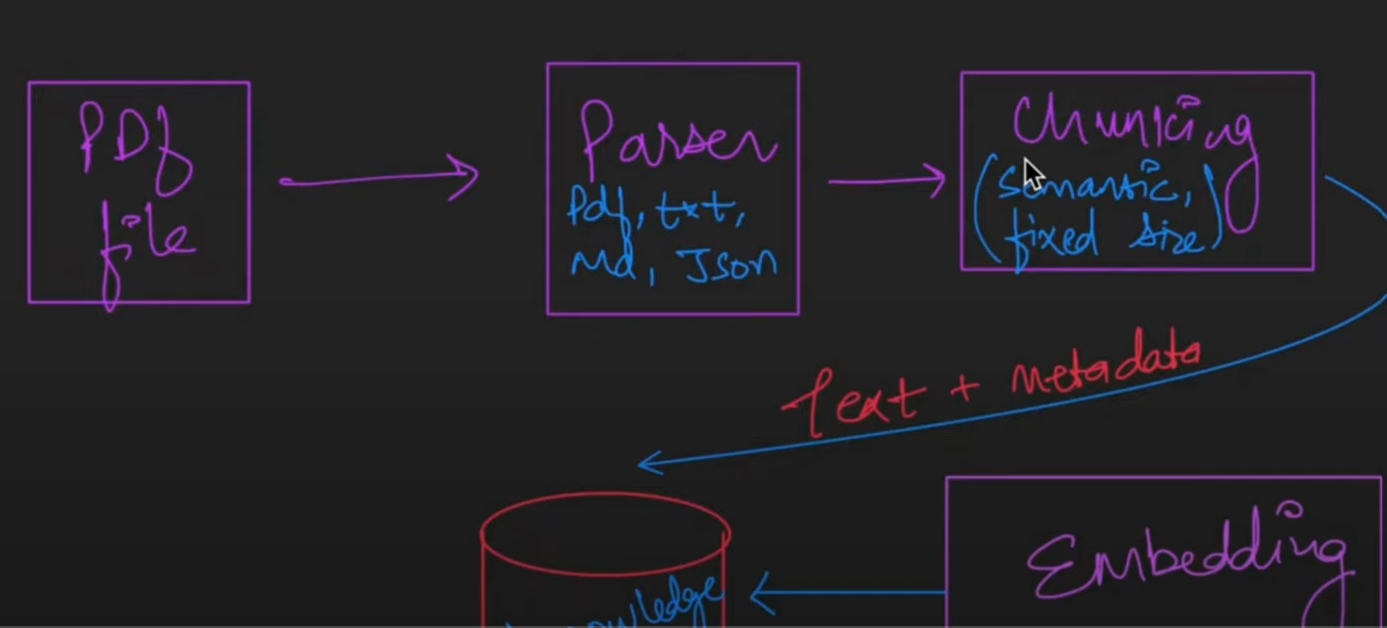 PDf
file
Parser
Pdf, txt,
Md, Json
Chunking
(semantic,
fixed size)
Text + metadata
Embedding